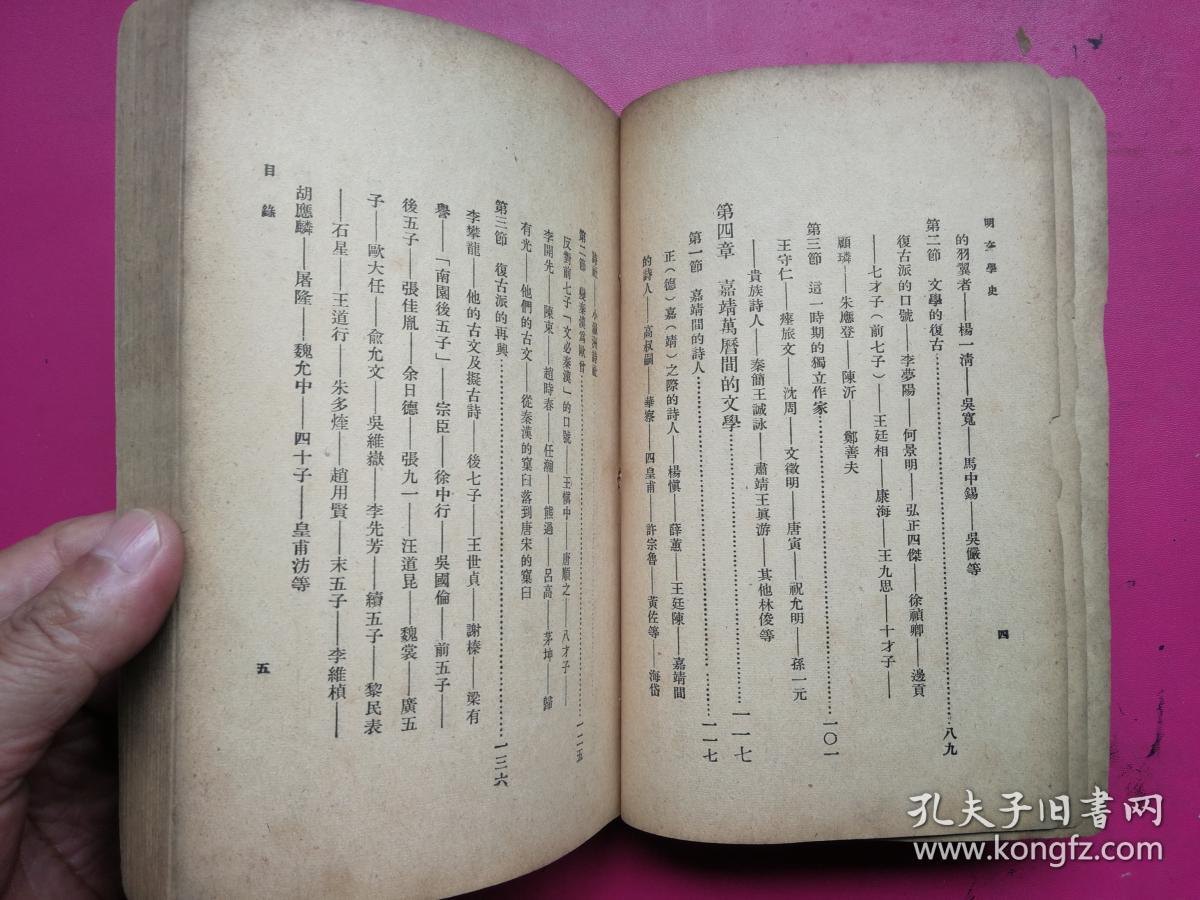 明文學史
的羽翼者——楊一淸——吳寬——馬中錫——吳儼等
第二節　文學的復古……八九
復古派的口號——李夢陽——何景明——弘正四傑——徐禎卿——邊貢
——七才子（前七子）——王廷相——康海——王九思——十才子——
顧璘——朱應登——陳沂——鄭善夫
第三節　這一時期的獨立作家……一〇一
王守仁——瘞旅文——沈周——文徵明——唐寅——祝允明——孫一元
——貴族詩人——秦簡王誠泳——肅靖王眞淤——其他林俊等
第四章　嘉靖萬曆間的文學……一一七
第一節　嘉靖間的詩人……一一七
正（德）嘉（靖）之際的詩人——楊愼——薛蕙——王廷陳——嘉靖間
的詩人——高叔嗣——華察——四皇甫——許宗魯——黃佐等——海岱
四
詩社——小瀛洲詩社
第二節　變秦漢爲歐曾……一二五
反對前七子「文必秦漢」的口號——王愼中——唐順之——八才子——
李開先——陳束——趙時春——任瀚——熊過——呂高——茅坤——歸
有光——他們的古文——從秦漢的窠臼落到唐宋的窠臼
第三節　復古派的再興……一三六
李攀龍——他的古文及擬古詩——後七子——王世貞——謝榛——梁有
譽——「南園後五子」——宗臣——徐中行——吳國倫——前五子——
後五子——張佳胤——余日德——張九一——汪道昆——魏裳——廣五
子——歐大任——俞允文——吳維嶽——李先芳——續五子——黎民表
——石星——王道行——朱多煃——趙用賢——末五子——李維楨——
胡應麟——屠隆——魏允中——四十子——皇甫汸等
目錄
五
孔夫子旧书网
www.kongfz.com